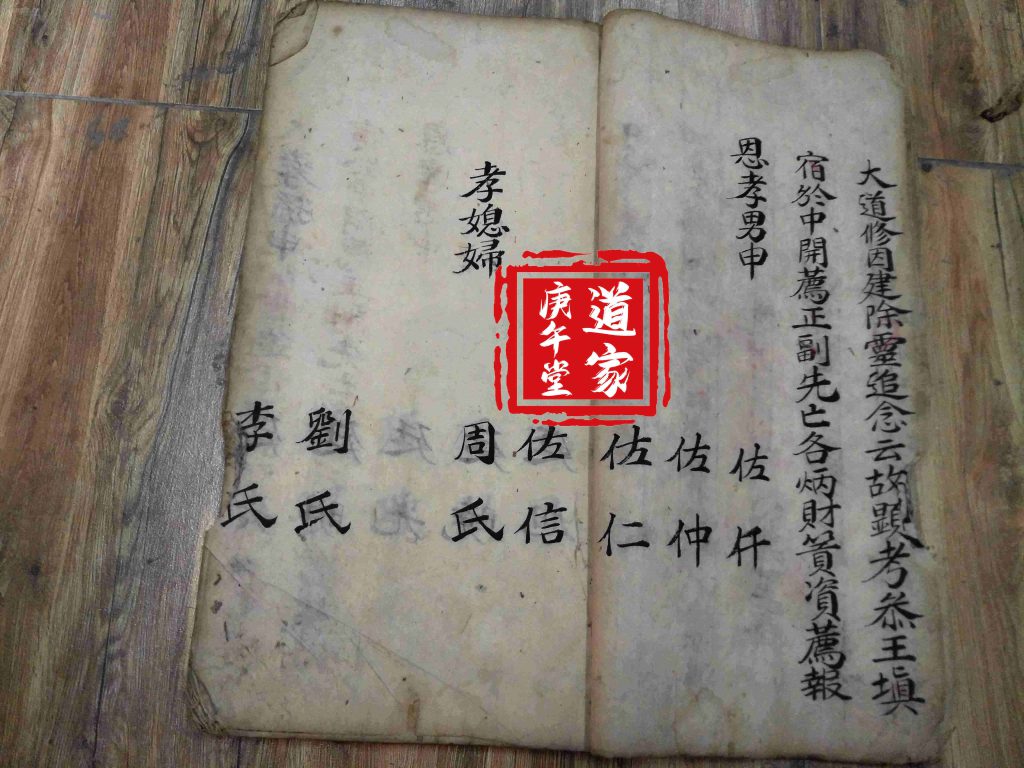 大道修因建除靈追念云故顯考叅王塡
宿於中開薦正副先亡各炳財簀資薦報
恩孝男申
佐仟
佐仲
佐仁
佐信
孝媳婦
周氏
劉氏
李氏
道家
庚午堂